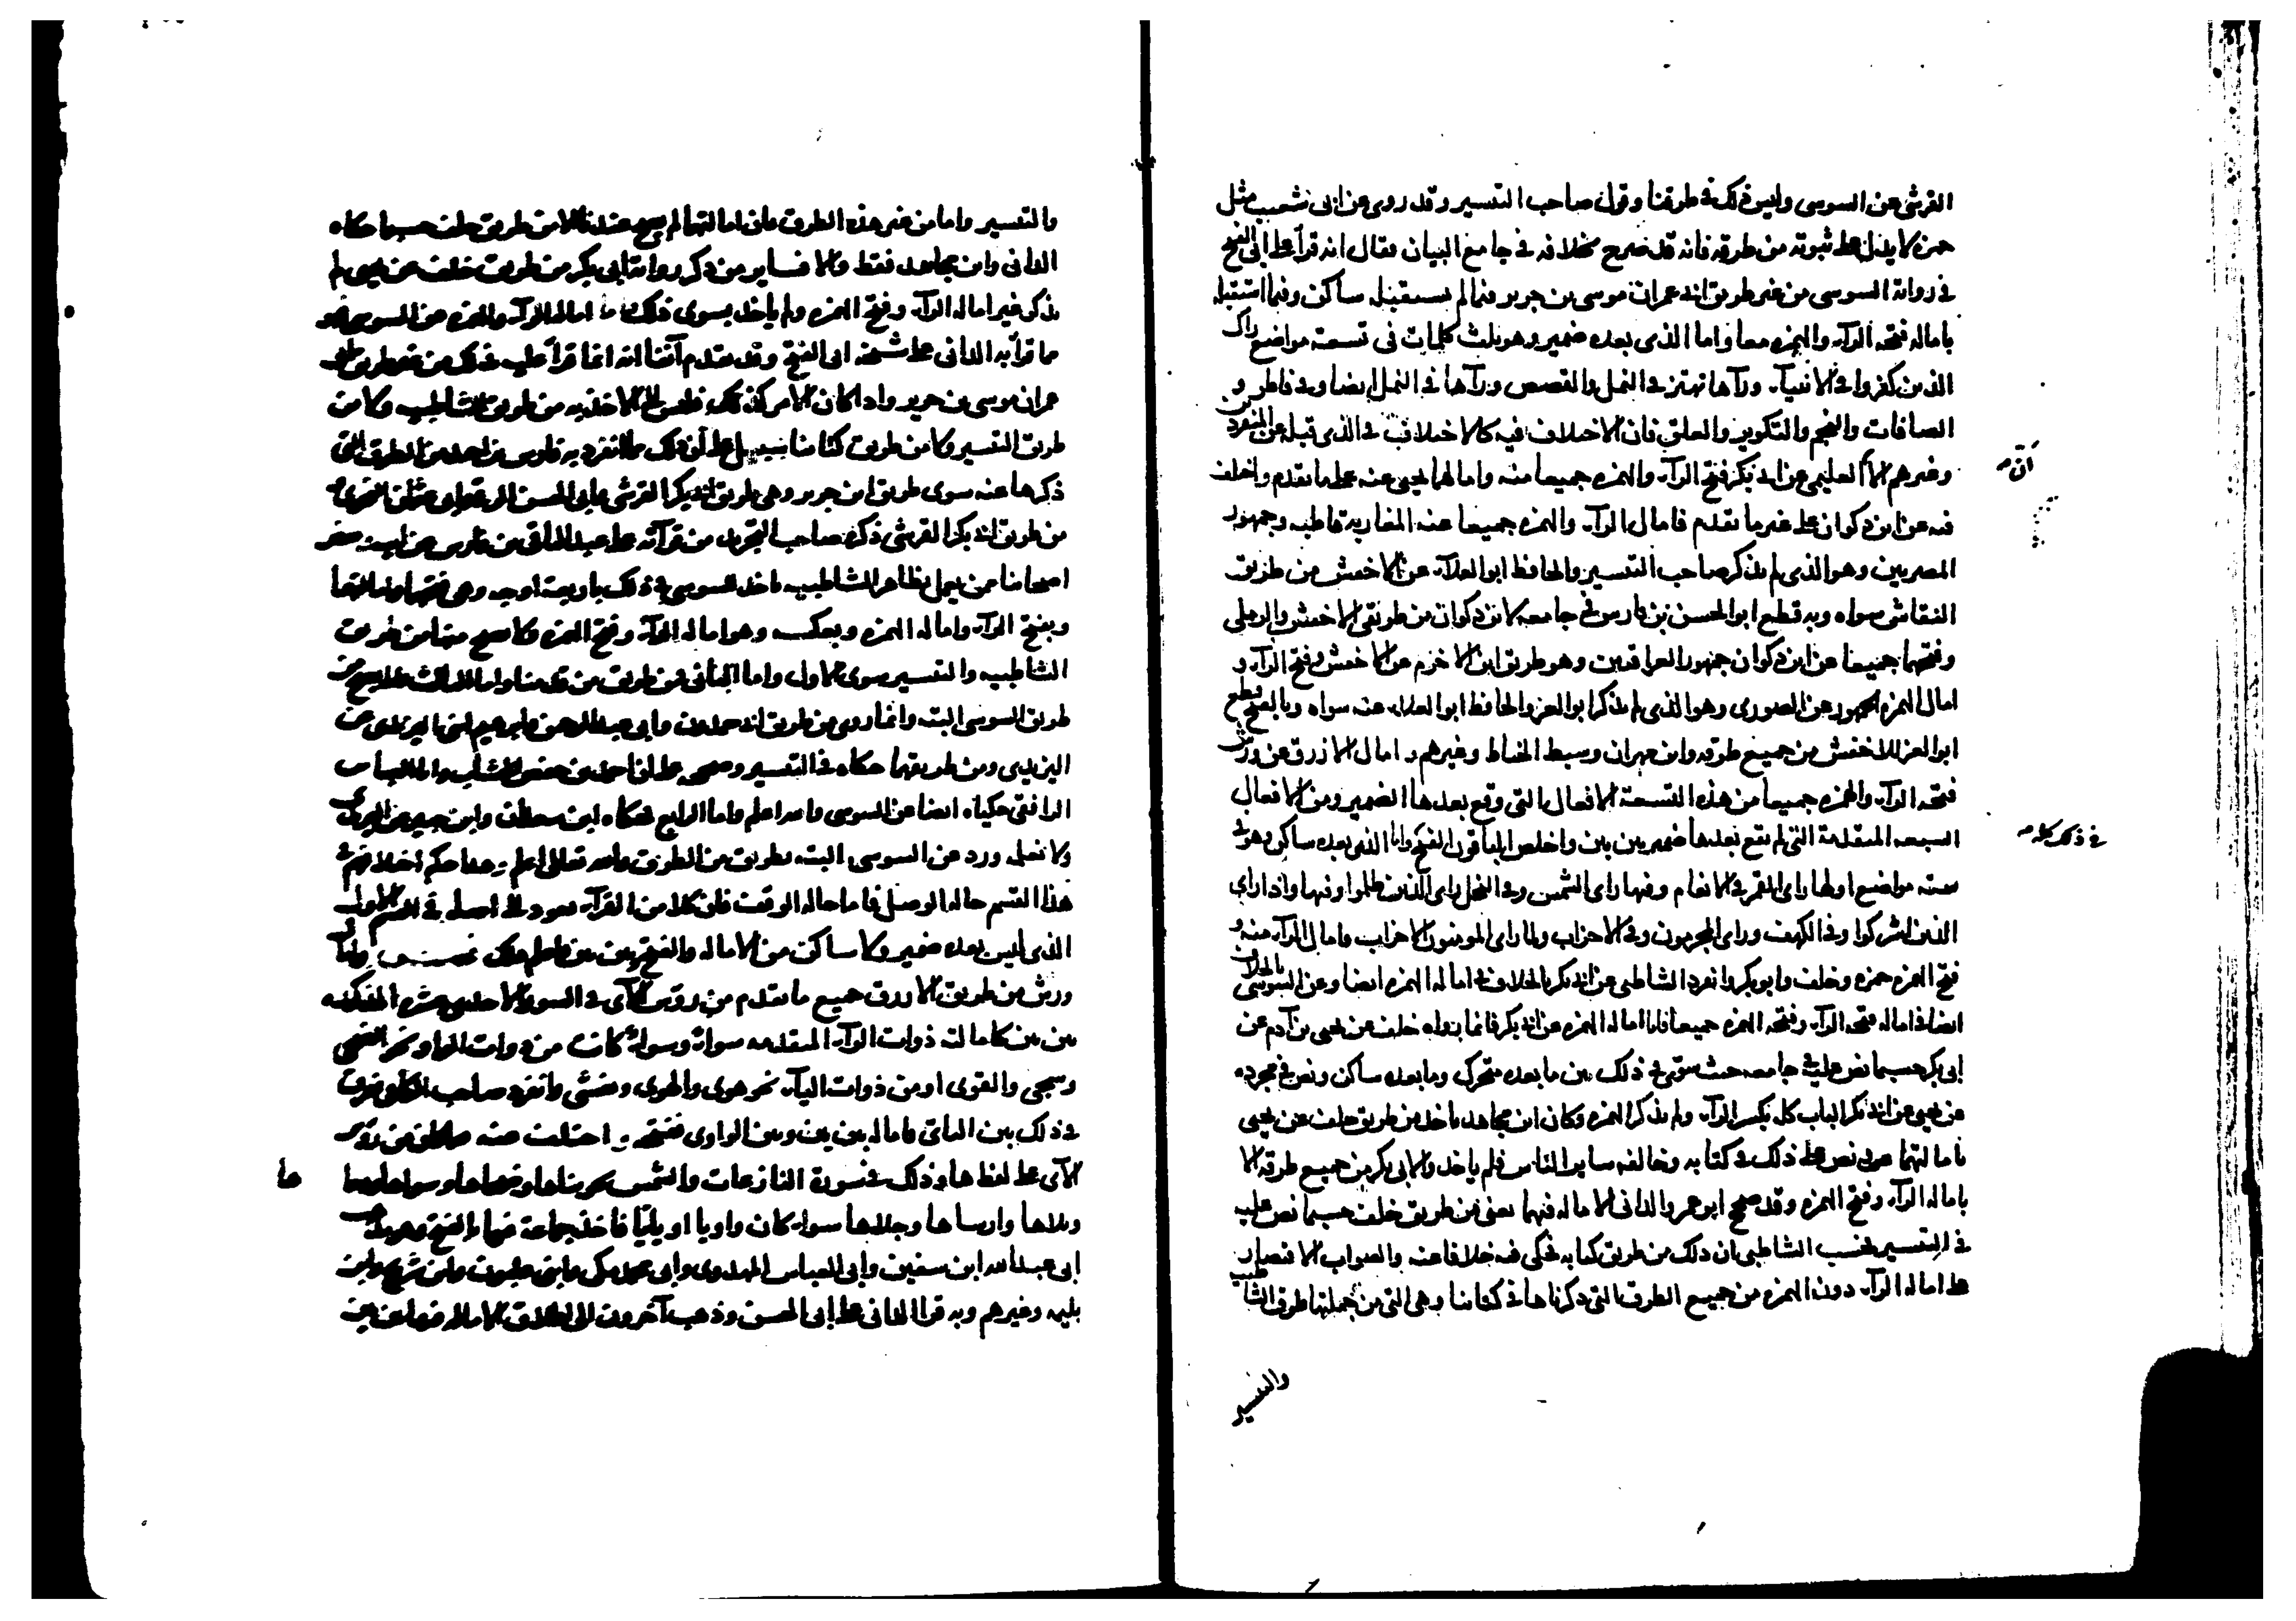 القرشي عن السوسي وليس ذلك في طرقنا وقول صاحب التيسير وقد روى عن ابى شعيب مثل
حمزه لا يدل على ثبوته من طرقه فانه قد صرح بخلافه في جامع البيان فقال انه قرأ على ابي الفتح
في رواية السوسي من غير طريق ابي عمران موسى بن جرير فيما لم يستقبله ساكن وفيما استقبله
بامالة فتحة الرآء والهمزه معا واما الذى بعده ضمير وهو ثلث كلمات في تسعة مواضع راك
الذين كفروا في الانبيآء ورآها تهتز في النمل والقصص ورآها في النمل ايضا وفي فاطر و
الصافات والنجم والتكوير والعلق فان الاختلاف فيه كالاختلاف في الذى قبله عن المنفردين
وغيرهم الا ان العليمي عن ابي بكر فتح الرآء والهمزه جميعا منه وامالهما يحيى عنه على ما تقدم واختلف
فيه عن ابن ذكوان على غير ما تقدم فامال الرآء والهمزه جميعا عنه المغاربة قاطبه وجمهور
المصريين وهو الذى لم يذكر صاحب التيسير والحافظ ابو العلآء عن الاخفش من طريق
النقاش سواه وبه قطع ابو الحسن بن فارس في جامعه لابن ذكوان من طريقي الاخفش والرملي
وفتحهما جميعا عن ابن ذكوان جمهور العراقيين وهو طريق ابن الاخرم عن الاخفش وفتح الرآء و
امال الهمزه الجمهور عن الصورى وهو الذى لم يذكر ابو العز والحافظ ابو العلآء عنه سواه وبالفتح قطع
ابو العز للاخفش من جميع طرقه وابن مهران وسبط الخياط وغيرهم وامال الازرق عن ورش
فتحة الرآء والهمزه جميعا من هذه التسعة الافعال التي وقع بعدها الضمير ومن الافعال
السبعه المتقدمة التي لم يقع بعدها ضمير بين بين واخلص الباقون الفتح في ذلك كله واما الذى بعده ساكن وهو في
سته مواضع اولها راى القمر في الانعام وفيها راى الشمس وفي النحل راى الذين ظلموا وفيها واذا راى
الذين اشركوا وفي الكهف وراى المجرمون وفي الاحزاب ولما راى المومنون الاحزاب فامال الرآء منه و
فتح الهمزه حمزه وخلف وابو بكر وانفرد الشاطبي عن ابي بكر بالخلاف في امالة الهمزه ايضا وعن السوسي بالخلاف
ايضا في امالة فتحة الرآء وفتحة الهمزه جميعا فاما امالة الهمزه عن ابي بكر فانما رواه خلف عن يحيى بن آدم عن
ابي بكر حسبما نص عليه في جامعه حيث سوّى في ذلك بين ما بعده متحرك وما بعده ساكن ونص في مجرده
عن يحيى عن ابي بكر الباب كله بكسر الرآء ولم يذكر الهمزه وكان ابن مجاهد ياخذ من طريق خلف عن يحيى
بامالتهما ونص على ذلك في كتابه وخالفه سائر الناس فلم ياخذوا لابي بكر من جميع طرقه الا
بامالة الرآء وفتح الهمزه وقد صحح ابو عمرو الداني الامالة فيهما يعني من طريق خلف حسبما نص عليه
في التيسير فحسب الشاطبي ان ذلك من طريق كتابه فحكى فيه خلافا عنه والصواب الاقتصار
على امالة الرآء دون الهمزه من جميع الطرق التي ذكرناها في كتابنا وهي التي من جملتها طرق الشاطبيه
والتيسير
والتيسير واما من غير هذه الطرق فان امالتهما لم يصح عندنا الا من طريق خلف حسبما حكاه
الداني وابن مجاهد فقط والا فسائر من ذكر رواية ابي بكر من طريق خلف عن يحيى لم
يذكر غير امالة الرآء وفتح الهمزه ولم ياخذ بسوى ذلك واما امالة الرآء والهمزه عن السوسي فهو
مما قرأ به الداني على شيخه ابي الفتح وقد تقدم آنفا انه انما قرأ عليه بذلك من غير طريق ابي
عمران موسى بن جرير واذا كان الامر كذلك فليس الى الاخذ به من طريق الشاطبيه ولا من
طريق التيسير ولا من طريق كتابنا سبيل على ان ذلك مما انفرد به فارس بن احمد من الطرق التي
ذكرها عنه سوى طريق ابن جرير وهي طريق ابي بكر القرشي وابي الحسن الرقي وابي عثمن النحوي و
من طريق ابي بكر القرشي ذكره صاحب التجريد من قرآءته على عبد الباقي بن فارس عن ابيه وبعض
اصحابنا ممن يعمل بظاهر الشاطبيه ياخذ للسوسي في ذلك باربعة اوجه وهي فتحهما وامالتهما
وبفتح الرآء وامالة الهمزه وبعكسه وهو امالة الرآء وفتح الهمزه ولا يصح منها من طريق
الشاطبيه والتيسير سوى الاول واما الثاني فمن طريق من قدمنا واما الثالث فلا يصح من
طريق السوسي البته وانما روى من طريق ابي حمدون وابي عبد الرحمن وابرهيم ابني اليزيدى عن
اليزيدى ومن طريقهما حكاه في التيسير وصححه على ان احمد بن حفص الخشاب وابا العباس
الرافقي حكياه ايضا عن السوسي والله اعلم واما الرابع فحكاه ابن سعدان وابن جبير عن اليزيدى
ولا نعلمه ورد عن السوسي البته بطريق من الطرق والله تعالى اعلم هذا حكم اختلافهم في
هذا القسم حالة الوصل فاما حالة الوقف فان كلا من القرآء يعود الى اصله في القسم الاول
الذى ليس بعده ضمير ولا ساكن من الامالة والفتح وبين بين فاعلم ذلك فصل وامال
ورش من طريق الازرق جميع ما تقدم من رؤس الآى في السور الاحدى عشره المذكوره
بين بين كامالته ذوات الرآء المتقدمه سوآء وسوآء كانت من ذوات الواو نحو الضحى
وسجى والقوى او من ذوات اليآء نحو هوى والهوى ويغشى وانفرد صاحب الكافي ففرق
في ذلك بين اليائي فاماله بين بين وبين الواوى ففتحه واختلف عنه فيما كان من رؤس
الآى على لفظ ها وذلك في سورة النازعات والشمس نحو بناها وضحاها وسواها ودحاها
وتلاها وارساها وجلاها سوآء كان واويا او يائيا فاخذ جماعة فيها بالفتح وهو مذهب
ابي عبد الله ابن سفين وابي العباس المهدوى وابي محمد مكي وابني غلبون وابن شريح وابن
بليمه وغيرهم وبه قرأ الداني على ابي الحسن وذهب آخرون الى اطلاق الامالة فيها بين بين